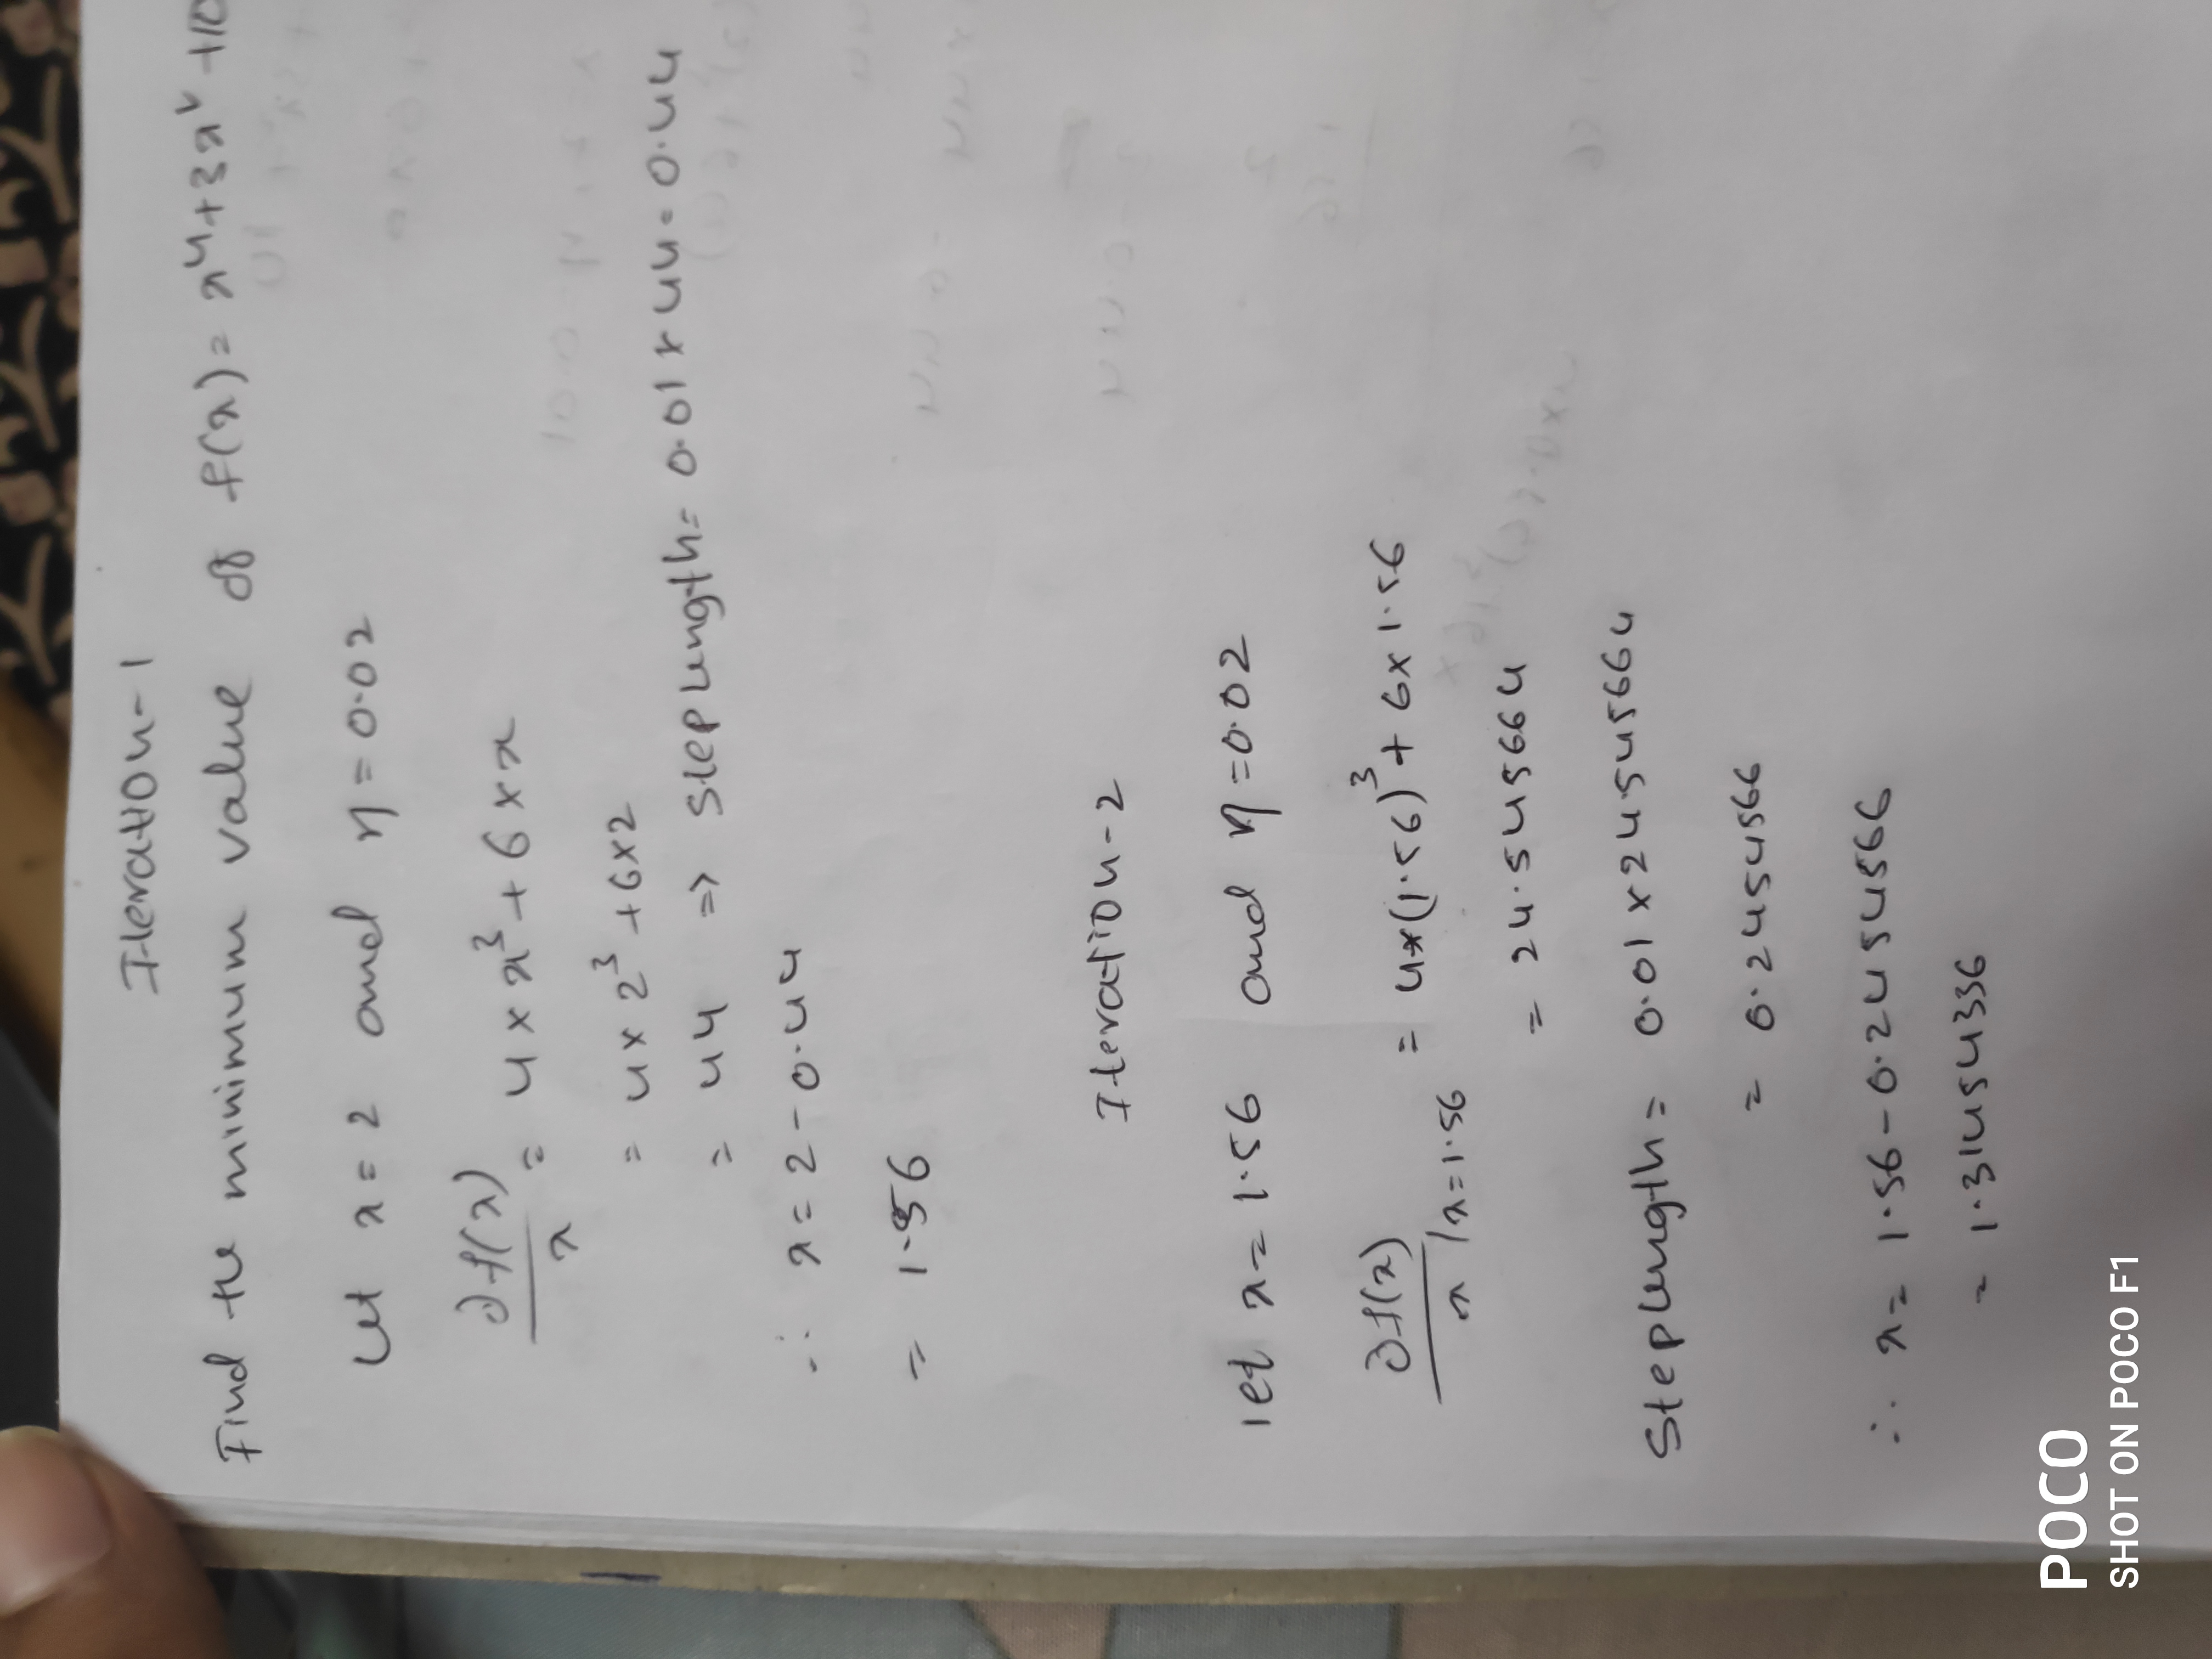 Iteration-1
Find the minimum value of f(x) = x⁴+3x² +10
Let x = 2 and η = 0.02
∂f(x)
x
= 4 × x³ + 6 × x
= 4 × 2³ + 6×2
= 44 => Step length = 0.01 × 44 = 0.44
∴ x = 2 - 0.44
= 1.56
Iteration-2
let x = 1.56 and η = 0.02
∂f(x)
x /x=1.56
= 4*(1.56)³ + 6× 1.56
= 24.545664
Step length = 0.01 × 24.545664
= 0.2454566
∴ x = 1.56 - 0.2454566
= 1.31454336
POCO
SHOT ON POCO F1